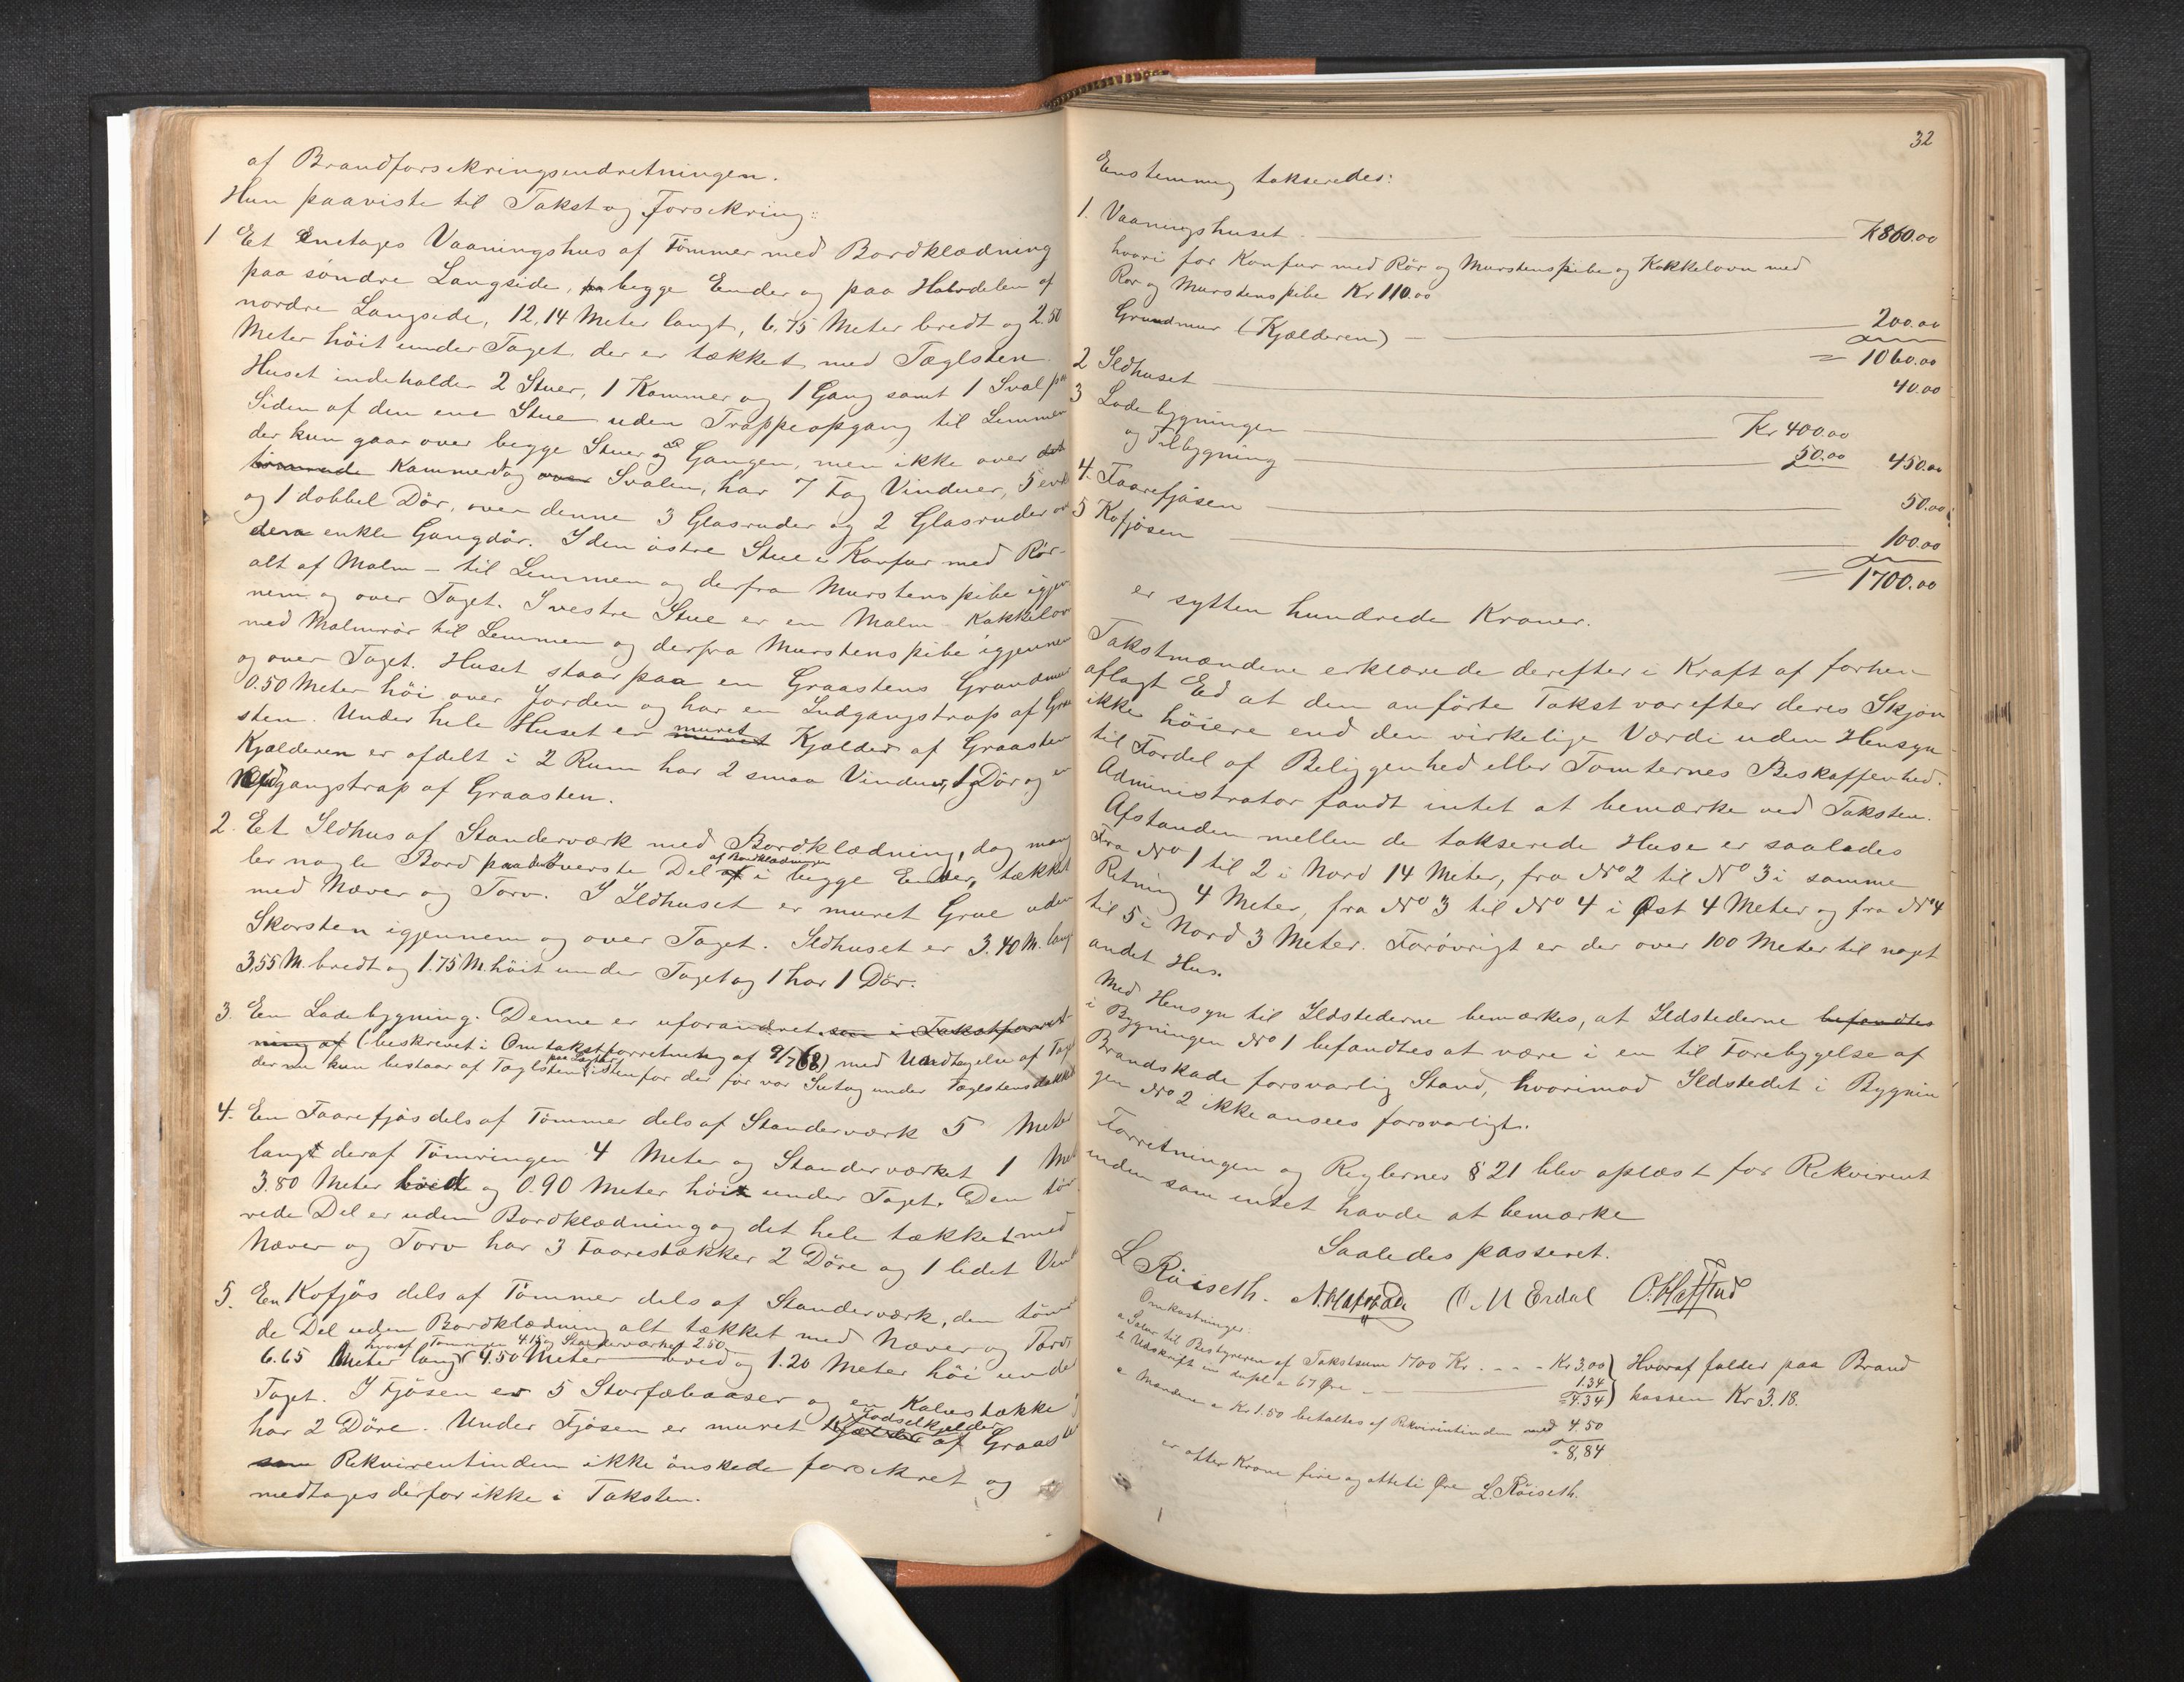 af Brandforsikringsindretningen.
Hun paaviste til Takst og Forsikring:
1 Et Enetages Vaaningshus af Tømmer med Bordklædning
paa søndre Langside, paa begge Ender og paa Halvdelen af
nordre Langside, 12,14 Meter langt, 6.75 Meter bredt og 2.50
Meter høit under Taget der er tækket med Taglsten.
Huset indeholder 2 Stuer, 1 Kammer og 1 Gang samt 1 Sval paa
Siden af den ene Stue uden Trappeopgang til Lemmen
der kun gaar over begge Stuer og Gangen, men ikke over det
Kammeret og over Svalen, har 7 Fag Vinduer, 5 enk
og 1 dobbel Dör, over denne 3 Glasruder og 2 Glasruder ov
den enkle Gangdör. I den östre Stue er Komfur med Rör-
alt af Malm - til Lemmen og derfra Murstenspibe igjen-
nem og over Taget. I vestre Stue er en Malm Kakkelovn
med Malmrör til Lemmen og derfra Murstenspibe igjennem
og over Taget. Huset staar paa en Graastens Grundmur
0.50 Meter höi over Jorden og har en Indgangstrap af Graa
sten. Under hele Huset er muret muret Kjælder af Graasten
Kjælderen er afdelt i 2 Rum har 2 smaa Vinduer, 1 Dör og en
Nedgangstrap af Graasten.
2. Et Ildhus af Standerværk med Bordklædning, dog mang
ler nogle Bord paa det överste Del af i begge Ender, tækket
af Bordklædningen
med Næver og Torv. I Ildhuset er muret Grue uden
Skorsten igjennem og over Taget. Ildhuset er 3.40 M. lang
3,55 M. bredt og 1.75 M. höit under Taget og har 1 Dör.
3. En Ladebygning. Denne er uforandret som i Takstforret-
ning af (beskrevet i Omtakstforretning af 9/7 68) med Undtagelse af Tag
der nu kun bestaar af Taglsten paa Lægter istenfor der för var Sutag under Taglstens dækket
4. En Faarefjös dels af Tömmer dels af Standerværk 5 Meter
langt deraf Tömringen 4 Meter og Standerværket 1 Met
3.80 Meter bredt og 0.90 Meter höit under Taget. Den töm
rede Del er uden Bordklædning og det hele tækket med
Næver og Torv har 3 Faarestækker 2 Döre og 1 lidet Vind
5. En Kofjös dels af Tömmer dels af Standerværk, den tömre
de Del uden Bordklædning alt tækket med Næver og Torv
hvoraf Tömringen 4.15 og Standerværket 2.50
6.65 Meter lang 4.50 Meter bred og 1.20 Meter höi under
Taget. I Fjösen er 5 Storfæbaaser og en Kalvestække
har 2 Döre. Under Fjösen er muret Kjælder af Graasten
Gjödselkjelder
som Rekvirentinden ikke önskede forsikret og
medtages derfor ikke i Taksten.
32
Enstemmig takseredes:
1. Vaaningshuset K 860.00
hvori for Komfur med Rör og Murstenspibe og Kakkelovn med
Rör og Murstenspibe Kr 110.00
Grundmur (Kjælderen) 200.00
= 1060.00
2 Ildhuset 40.00
3 Ladebygningen Kr 400.00
og Tilbygning 50.00 450.00
4. Faarefjösen 50.00
5 Kofjösen 100.00
= 1700.00
er sytten hundrede Kroner.
Takstmændene erklærede derefter i Kraft af forhen
aflagt Ed at den anförte Takst var efter deres Skjön
ikke höiere end den virkelige Værdi uden Hensyn
til Fordel af Beliggenhed eller Tomternes Beskaffenhed.
Administrator fandt intet at bemærke ved Taksten.
Afstanden mellem de takserede Huse er saaledes
Fra No 1 til 2 i Nord 14 Meter, fra No 2 til No 3 i samme
Retning 4 Meter, fra No 3 til No 4 i Øst 4 Meter og fra No 4
til 5 i Nord 3 Meter. Forövrigt er der over 100 Meter til noget
andet Hus.
Med Hensyn til Ildstederne bemærkes, at Ildstederne befandtes
i Bygningen No 1 befandtes at være i en til Forebyggelse af
Brandskade forsvarlig Stand, hvorimod Ildstedet i Bygnin
gen No 2 ikke ansees forsvarligt.
Forretningen og Reglernes § 21 blev oplæst for Rekvirent
inden som intet havde at bemærke
Saaledes passeret.
L Röiseth. O. M Erdal
Omkostninger:
a Salær til Bestyreren af Takstsum 1700 Kr. - - - Kr 3,00
b Udskrift in dupl a 67 Øre 1.34
= 4.34
Hvoraf falder paa Brand
kassen Kr 3.18.
c Mændene a Kr 1.50 betaltes af Rekvirentinden med 4.50
= 8,84
er otte Kroner fire og otteti Øre L. Röiseth.